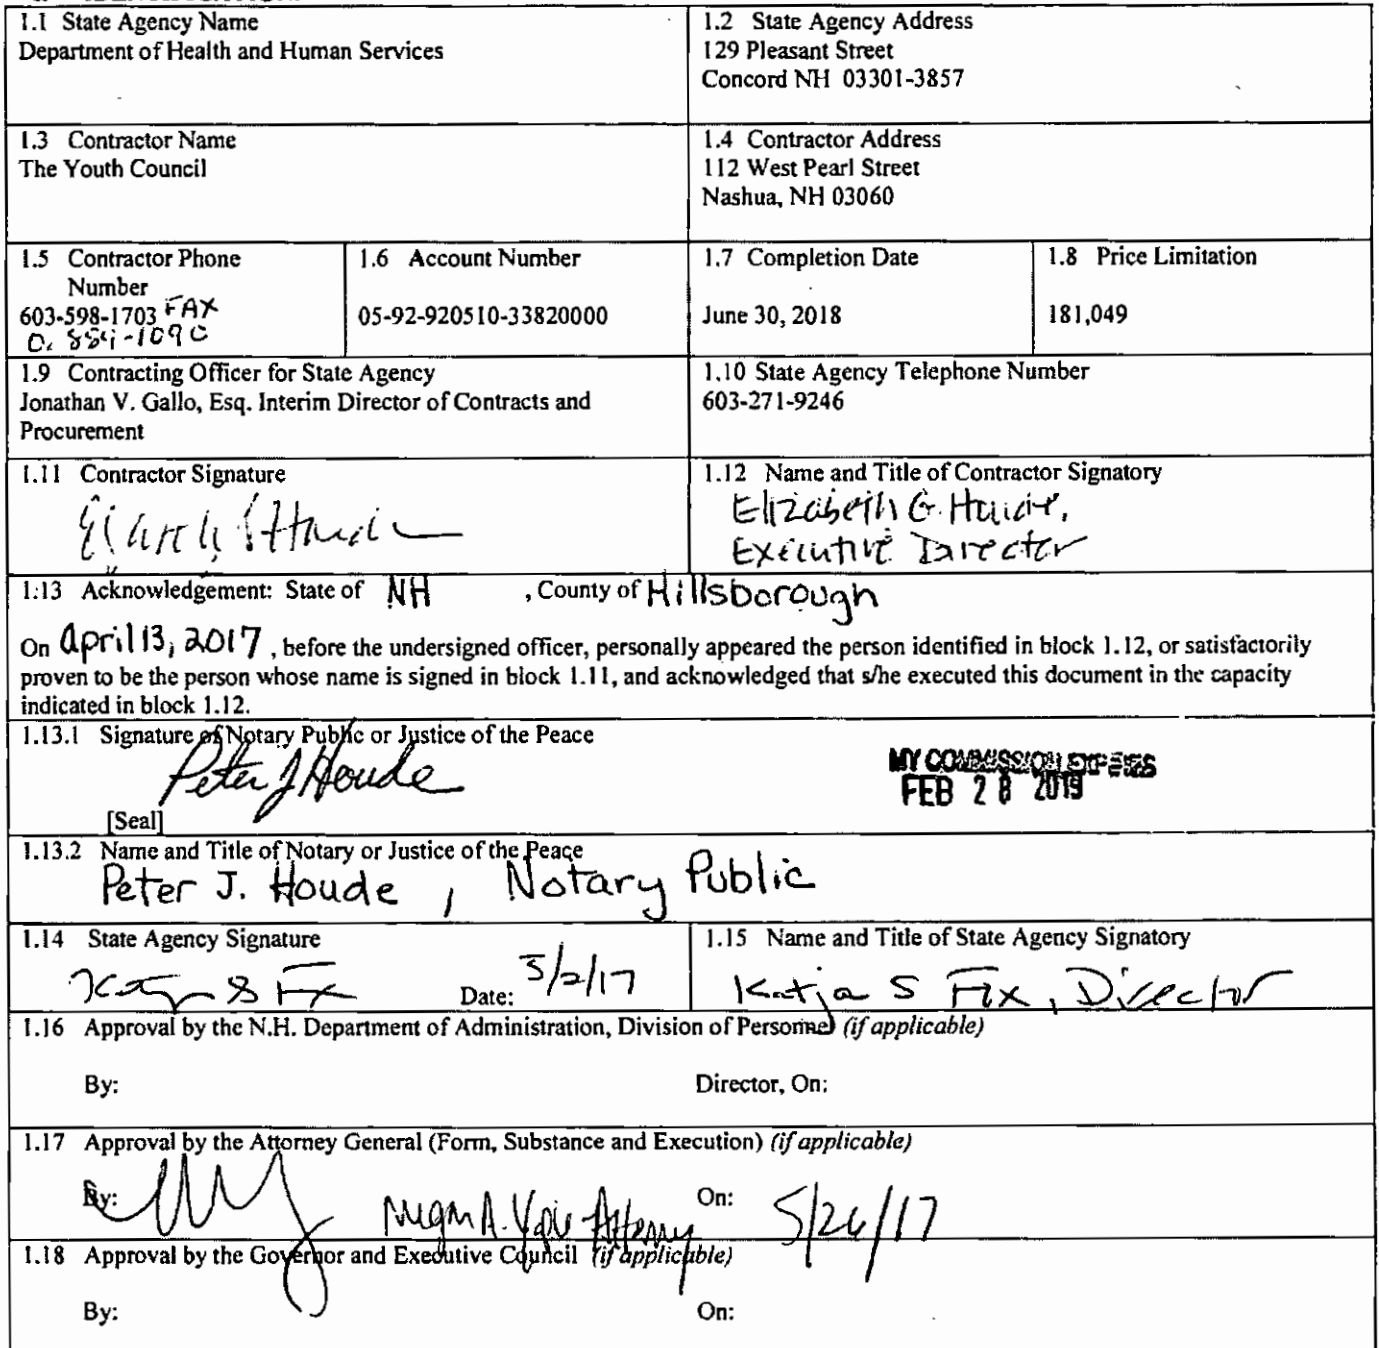 1.1 State Agency Name
Department of Health and Human Services
1.2 State Agency Address
129 Pleasant Street
Concord NH 03301-3857
1.3 Contractor Name
The Youth Council
1.4 Contractor Address
112 West Pearl Street
Nashua, NH 03060
1.5 Contractor Phone
Number
603-598-1703 FAX
1.6 Account Number
05-92-920510-33820000
1.7 Completion Date
June 30, 2018
1.8 Price Limitation
181,049
1.9 Contracting Officer for State Agency
Jonathan V. Gallo, Esq. Interim Director of Contracts and
Procurement
1.10 State Agency Telephone Number
603-271-9246
1.11 Contractor Signature
1.12 Name and Title of Contractor Signatory
Elizabeth G. Houde,
Executive Director
1.13 Acknowledgement: State of NH , County of Hillsborough
On April 13, 2017 , before the undersigned officer, personally appeared the person identified in block 1.12, or satisfactorily
proven to be the person whose name is signed in block 1.11, and acknowledged that s/he executed this document in the capacity
indicated in block 1.12.
1.13.1 Signature of Notary Public or Justice of the Peace
Peter J Houde
[Seal]
MY COMMISSION EXPIRES
FEB 28 2019
1.13.2 Name and Title of Notary or Justice of the Peace
Peter J. Houde , Notary Public
1.14 State Agency Signature
Date: 5/2/17
1.15 Name and Title of State Agency Signatory
Katja S Fox, Director
1.16 Approval by the N.H. Department of Administration, Division of Personnel (if applicable)
By:
Director, On:
1.17 Approval by the Attorney General (Form, Substance and Execution) (if applicable)
By: Attorney
On: 5/26/17
1.18 Approval by the Governor and Executive Council (if applicable)
By:
On: